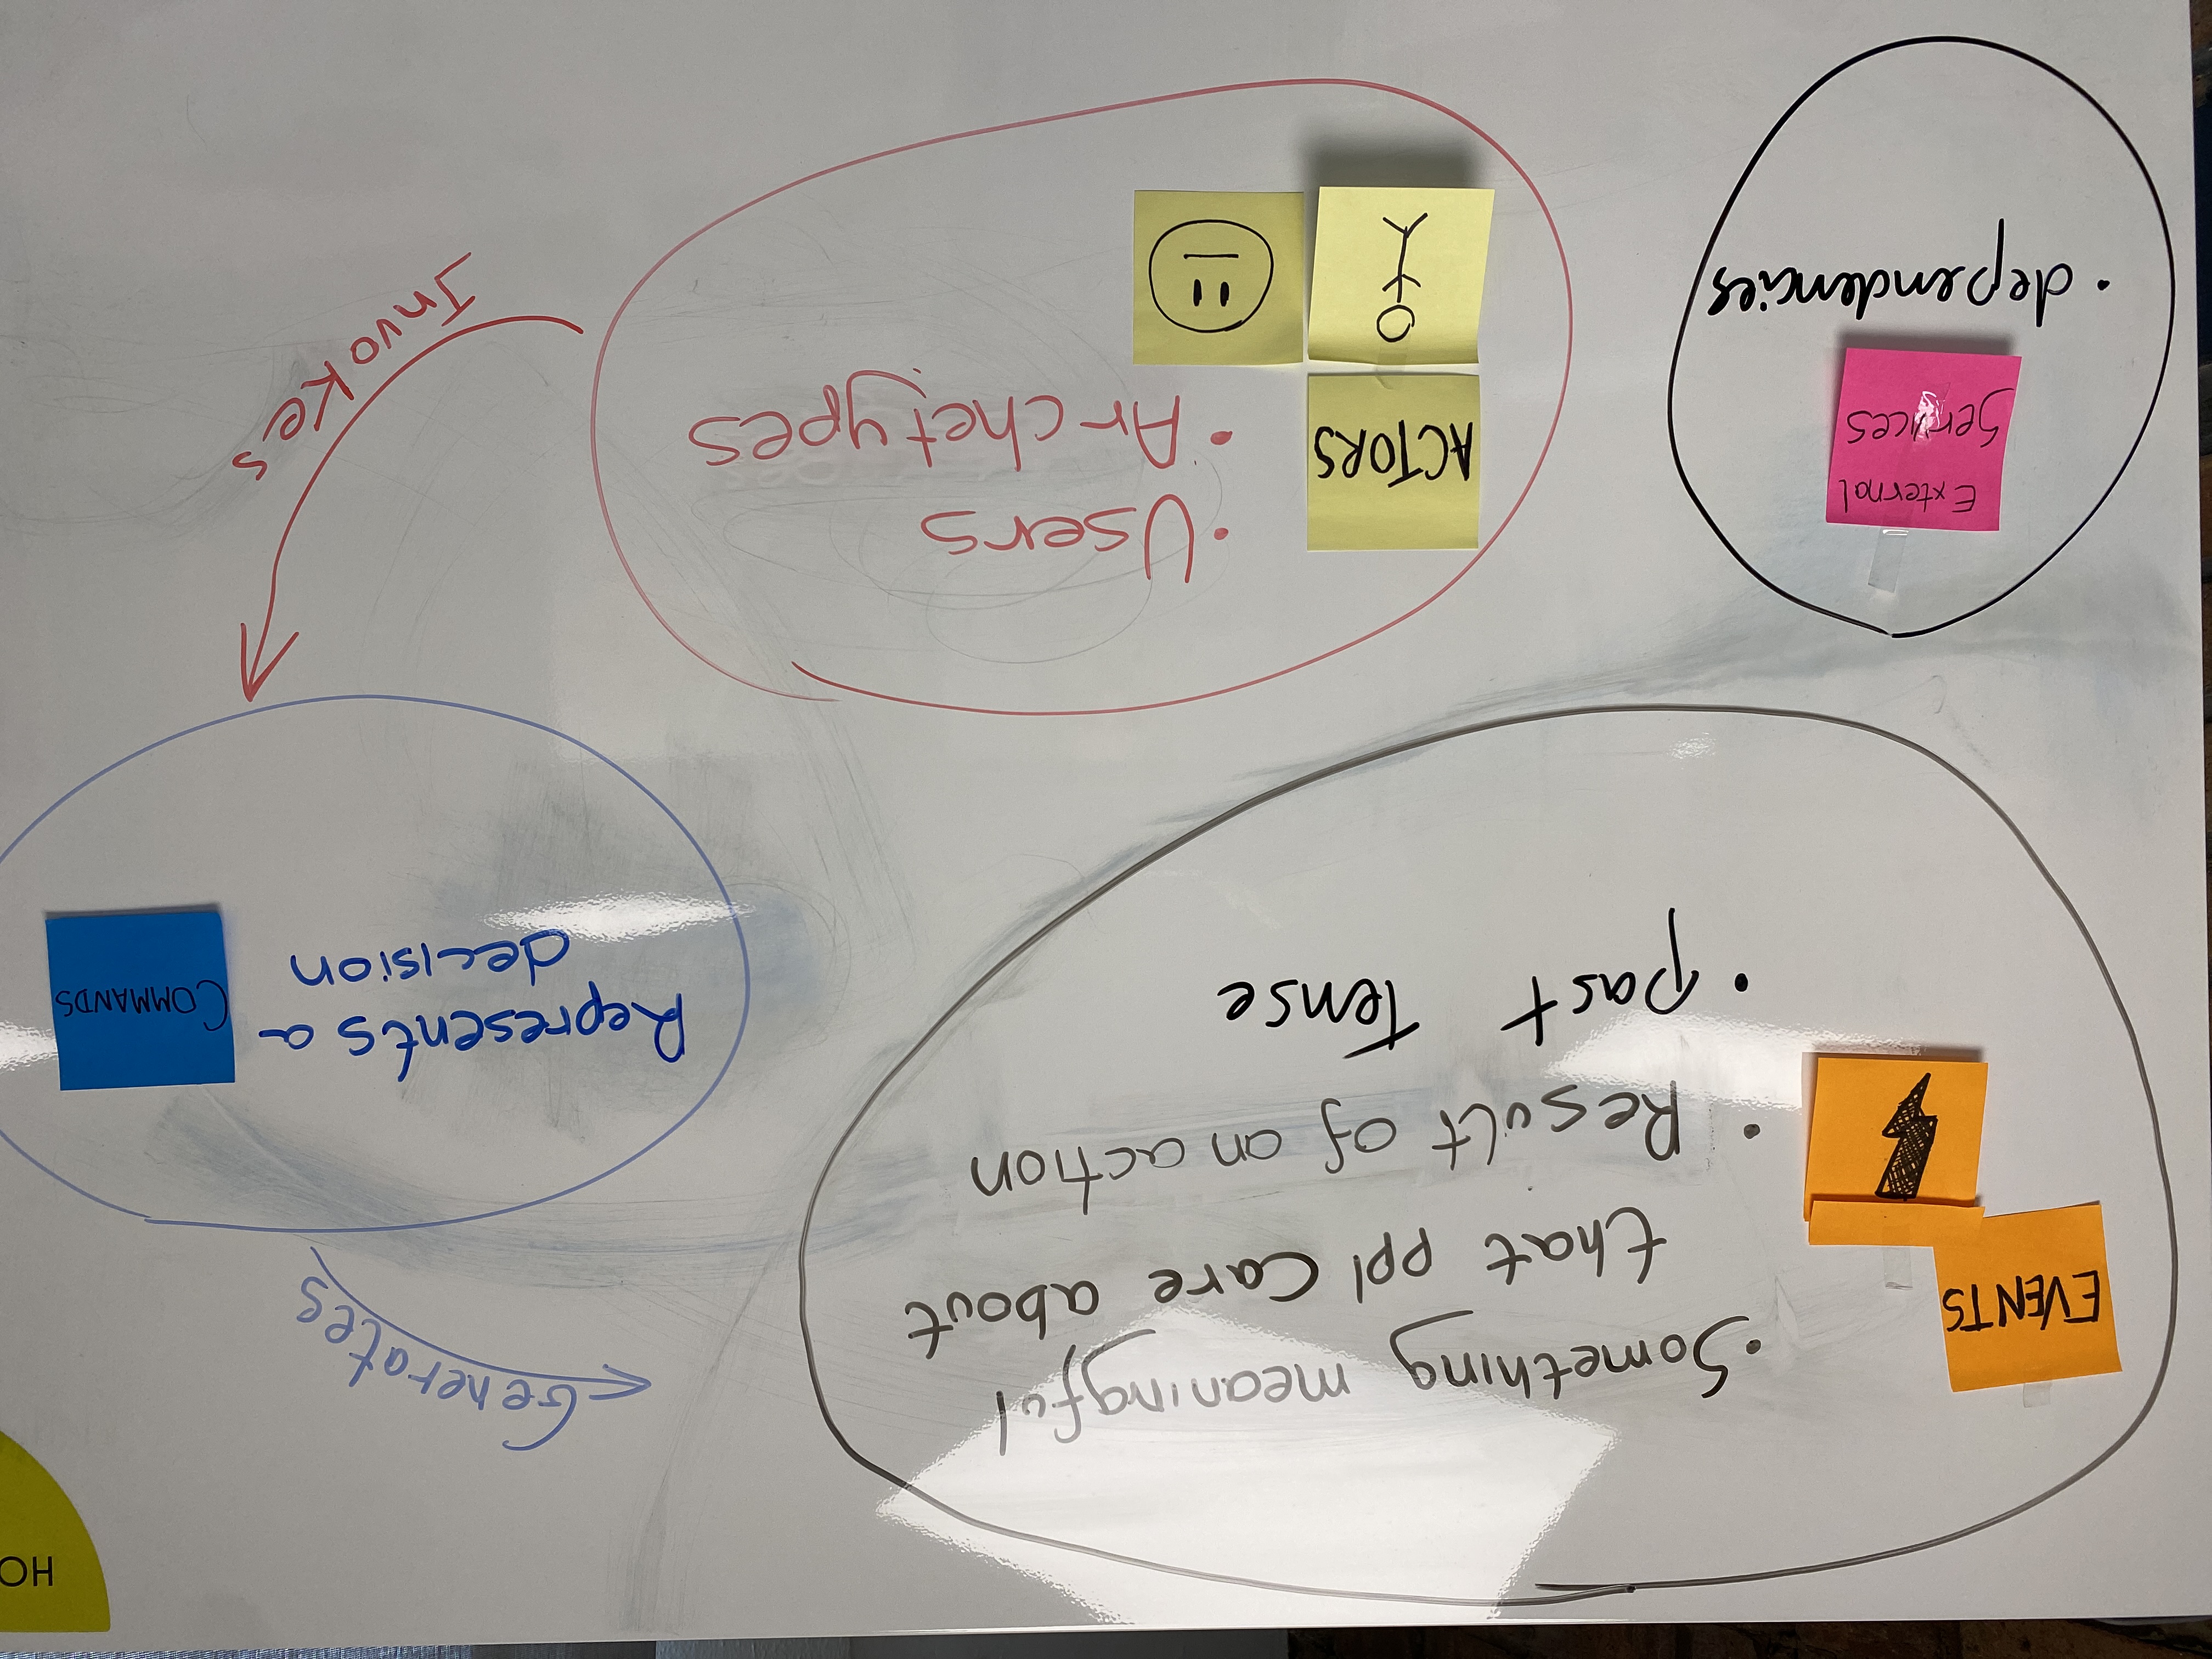 HO
Generates
EVENTS
• Something meaningful
that ppl care about
• Result of an action
• past Tense
Represents a
decision
COMMANDS
External
Services
• dependencies
ACTORS
• Users
• Archetypes
Invokes